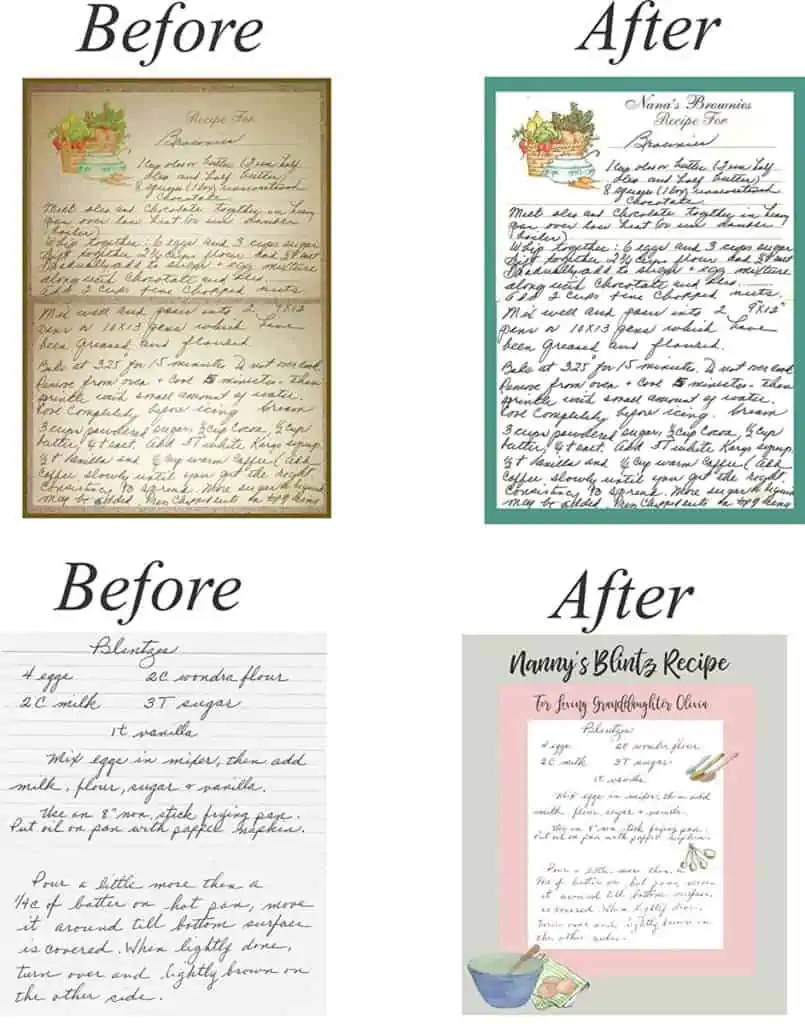 Before
Recipe For
Brownies
1 Cup oleo or butter (I use half
oleo and half butter)
8 squares (1 box) unsweetened
Chocolate
Melt oleo and Chocolate together in heavy
pan over low heat (or use double
boiler)
Whip together: 6 eggs and 3 cups sugar
Sift together 2 1/4 cups flour and salt
Gradually add to sugar + egg mixture
along with Chocolate and
Add 2 cups fine Chopped nuts.
Mix well and pour into 2 9X12"
pans or 10X13 pans which have
been Greased and floured.
Bake at 325° for 15 minutes. Do not over cook
Remove from oven + Cool 5 minutes - then
sprinkle with small amount of water.
Cool Completely before icing. Cream
3 cups powdered sugar, 1/2 cup Cocoa, 1/2 cup
butter, salt. Add 3T white Karo syrup,
vanilla and 1/2 cup warm Coffee (Add
Coffee slowly until you get the right
Consistency to spread. More sugar or liquid
may be added. Chopped nuts on top of icing
After
Nana's Brownies
Recipe For
Brownies
1 Cup oleo or butter (I use half
oleo and half butter)
8 squares (1 box) unsweetened
Chocolate
Melt oleo and Chocolate together in heavy
pan over low heat (or use double
boiler)
Whip together: 6 eggs and 3 cups sugar
Sift together 2 1/4 cups flour and salt
Gradually add to sugar + egg mixture
along with Chocolate and
Add 2 cups fine Chopped nuts.
Mix well and pour into 2 9"X12"
pans or 10X13 pans which have
been Greased and floured.
Bake at 325° for 15 minutes. Do not over cook
Remove from oven + Cool 5 minutes - then
sprinkle with small amount of water.
Cool Completely before icing. Cream
3 cups powdered sugar, 1/2 cup Cocoa, 1/2 cup
butter, salt. Add 3T white Karo syrup,
vanilla and 1/2 cup warm Coffee (Add
Coffee slowly until you get the right
Consistency to spread. More sugar or liquid
may be added. Chopped nuts on top of icing
Before
Blintzes
4 eggs 2C wondra flour
2C milk 3T sugar
1t vanilla
Mix eggs in mixer, then add
milk, flour, sugar + vanilla.
Use an 8" non, stick frying pan.
Put oil on pan with papper napken.
Pour a little more then a
1/4c of batter on hot pan, move
it around till bottom surface
is covered. When lightly done,
turn over and lightly brown on
the other side.
After
Nanny's Blintz Recipe
For Loving Granddaughter Olivia
Blintzes
4 eggs 2C wondra flour
2C milk 3T sugar
1t vanilla
Mix eggs in mixer, then add
milk, flour, sugar + vanilla.
Use an 8" non, stick frying pan.
Put oil on pan with papper napken.
Pour a little more then a
1/4c of batter on hot pan, move
it around till bottom surface
is covered. When lightly done,
turn over and lightly brown on
the other side.